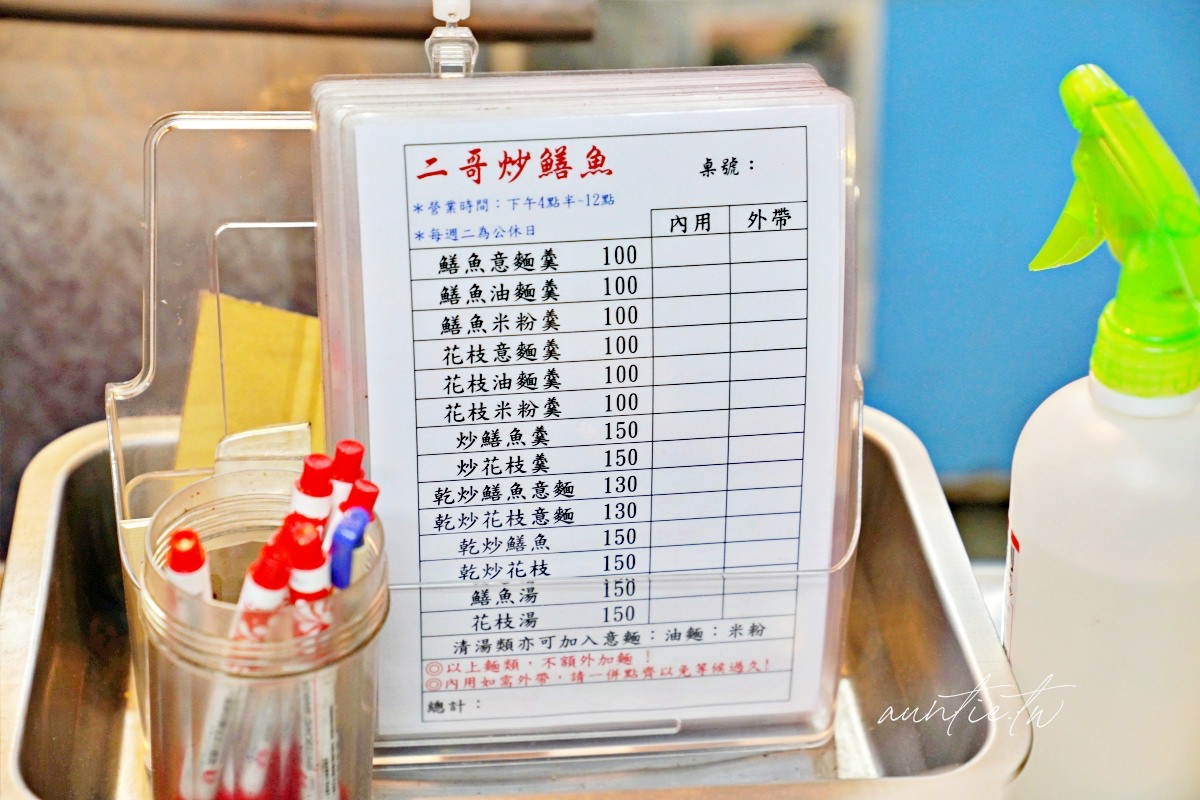 二哥炒鱔魚 桌號：
＊營業時間：下午4點半~12點
＊每週二為公休日
內用 外帶
鱔魚意麵羹 100
鱔魚油麵羹 100
鱔魚米粉羹 100
花枝意麵羹 100
花枝油麵羹 100
花枝米粉羹 100
炒鱔魚羹 150
炒花枝羹 150
乾炒鱔魚意麵 130
乾炒花枝意麵 130
乾炒鱔魚 150
乾炒花枝 150
鱔魚湯 150
花枝湯 150
清湯類亦可加入意麵：油麵：米粉
◎以上麵類，不額外加麵！
◎內用如需外帶，請一併點齊以免等候過久！
總計：
auntie.tw